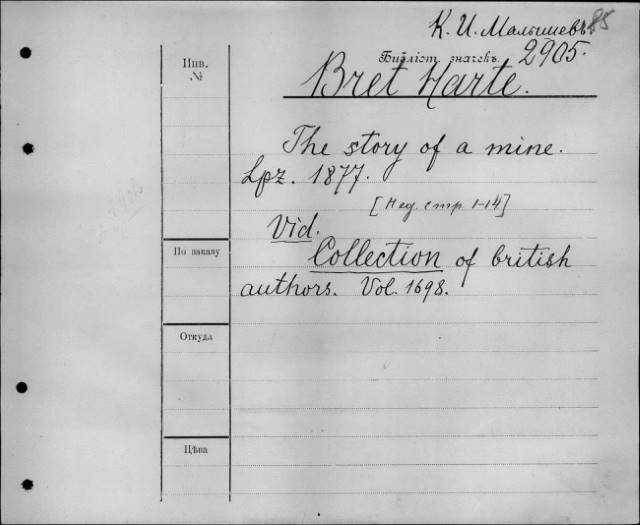 К. И. Малышевъ. 85
Библіот. значекъ 2905.
Инв.
№
Bret Harte.
The story of a mine.
Lpz. 1877.
[Нед. стр. 1-14]
Vid.
Collection of british
authors. Vol. 1698.
По заказу
Откуда
Цѣна